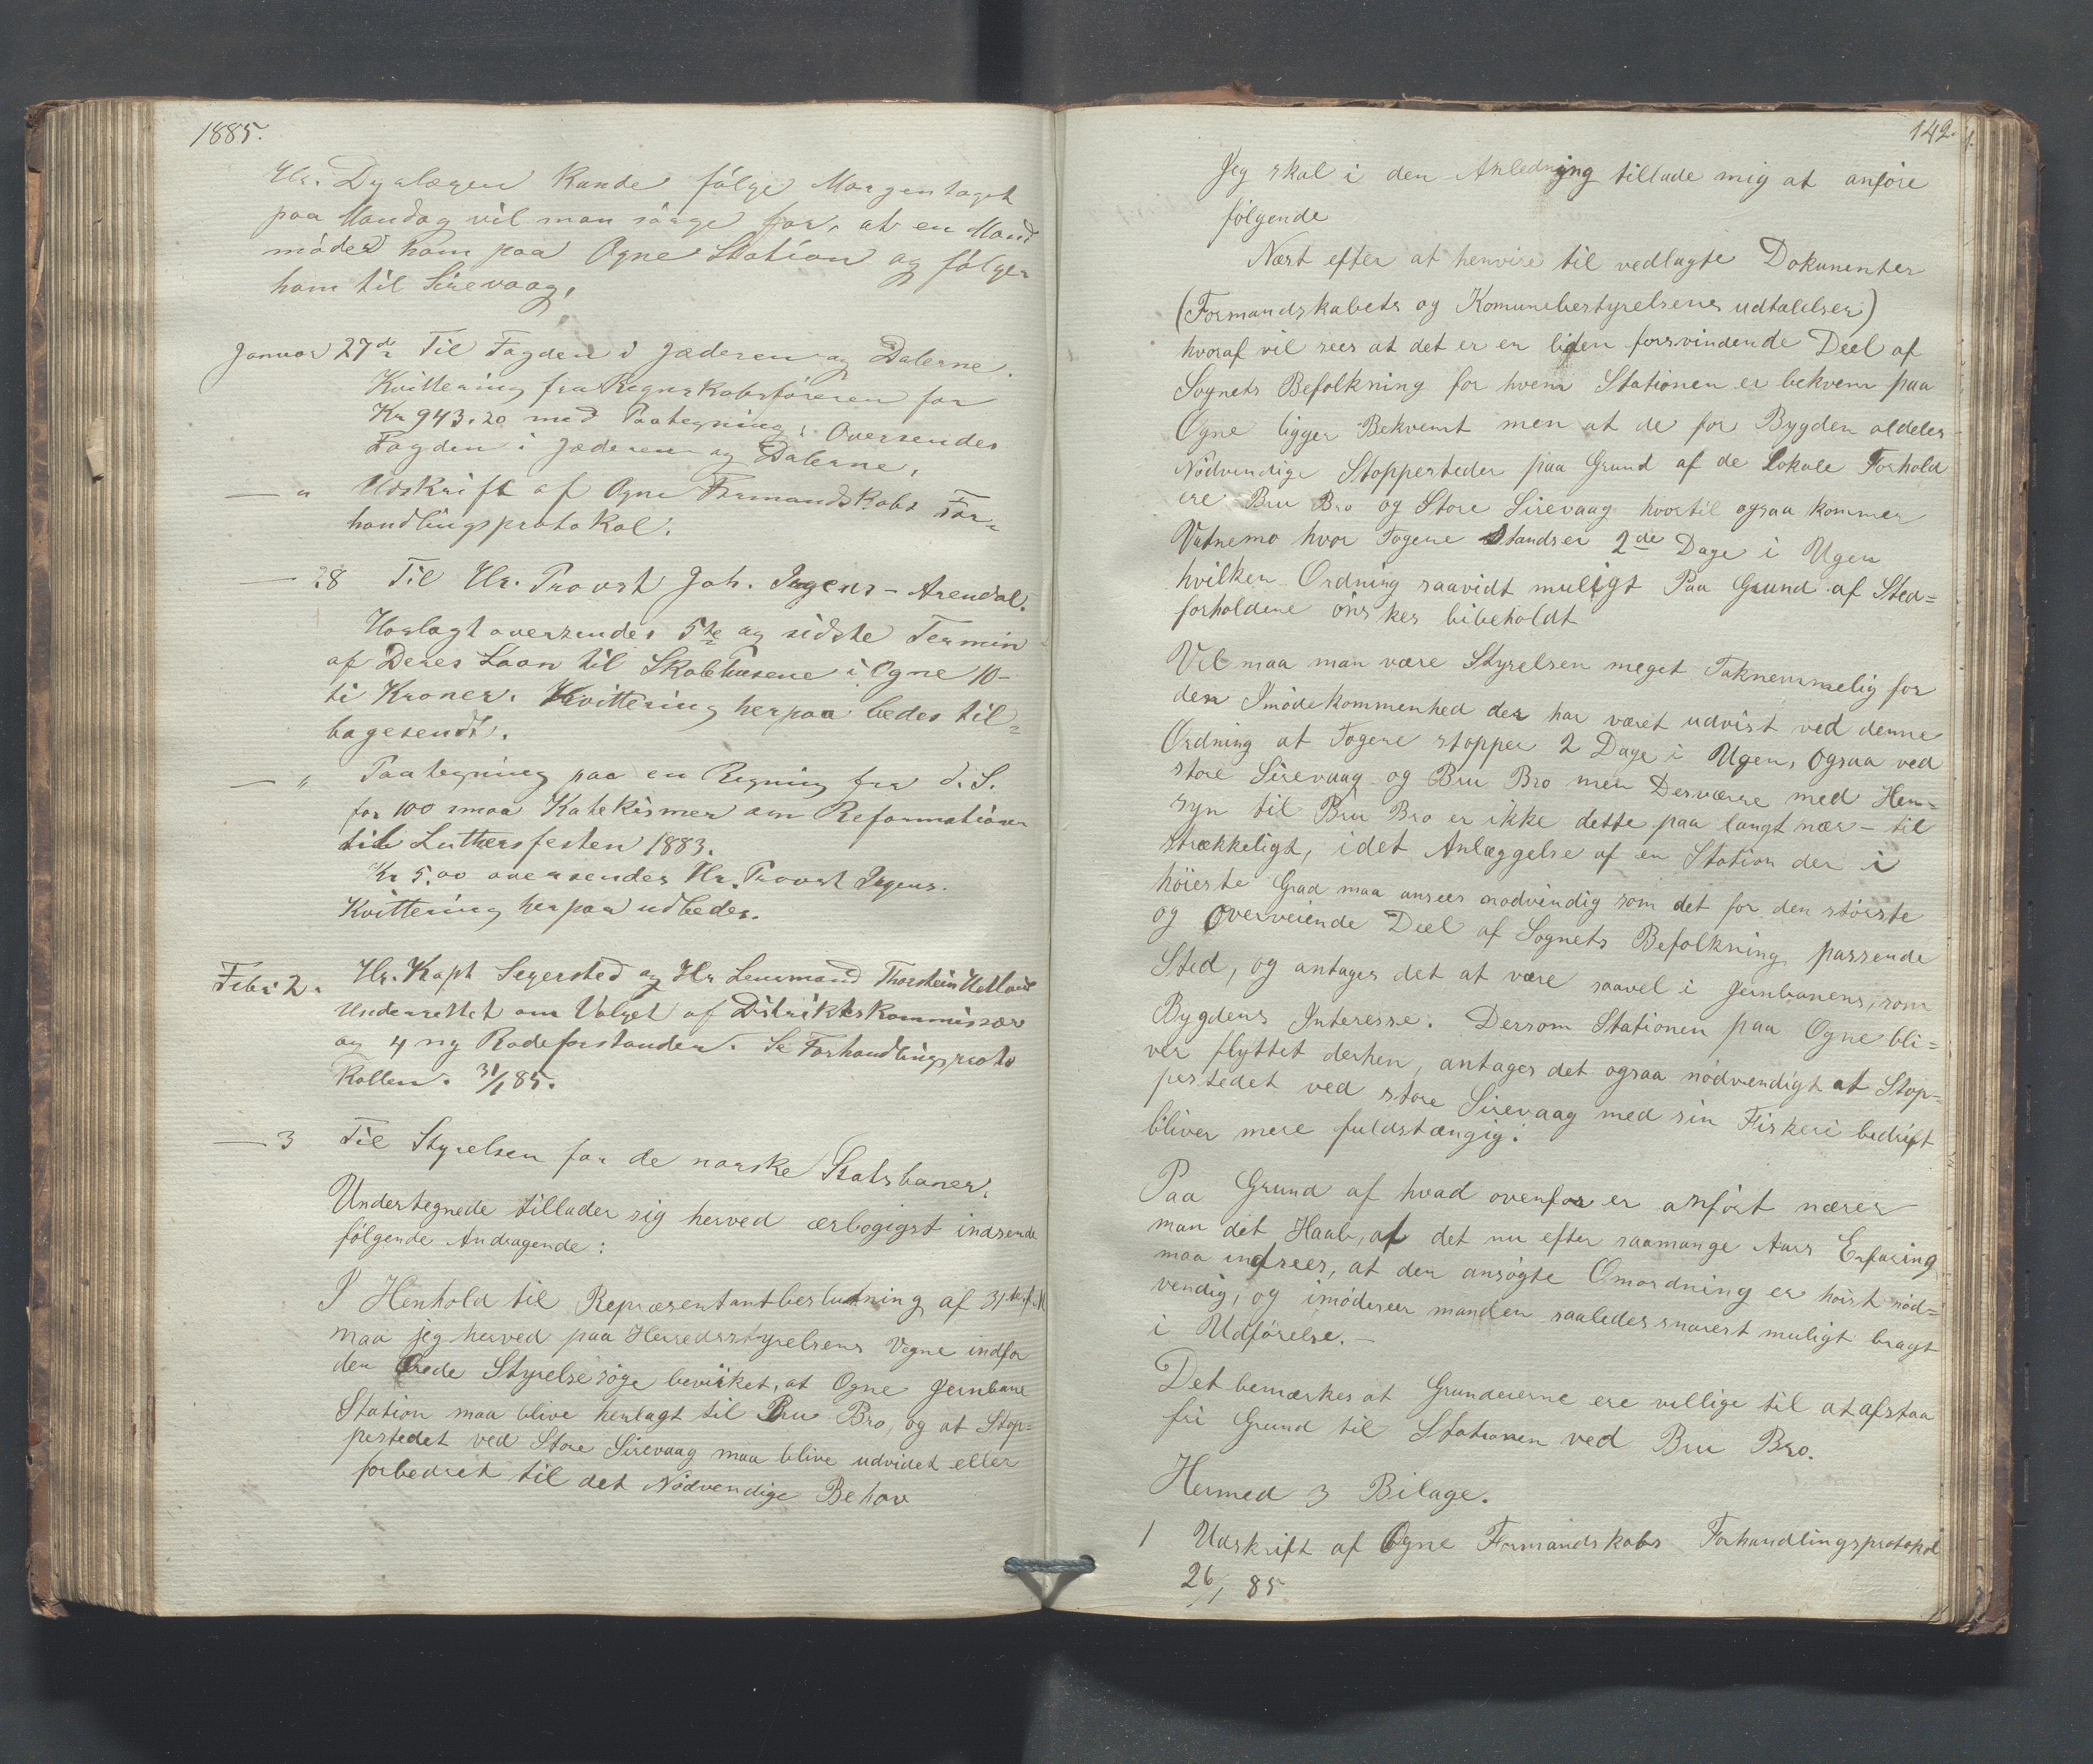 1885.
Hr. Dyrlægen Kunde følge Morgentoget
paa Mandag vil man sørge for, at en Mand
møder ham paa Ogne Station og følger
ham til Sirevaag,
Januar 27de Til Fogden i Jæderen og Dalerne.
Kvittering fra Regnskabsføreren for
Kr 943.20 med Paategning: Oversendes
Fogden i Jæderen og Dalerne,
— " Udskrift af Ogne Formandskabs For-
handlingsprotokol.
— 28 Til Hr. Provst Joh. Jngens - Arendal.
Hoslagt oversendes 5te og sidste Termin
af Deres Laan til Skolehusene i Ogne 10-
ti Kroner. Kvittering herpaa bedes til-
bagesendt.
— " Paategning paa en Regning fra d. S.
for 100 smaa Katekismer om Reformationen
til Luthersfesten 1883.
Kr 5.00 oversendes Hr. Provst Jngens.
Kvittering herpaa udbedes.
Febr 2. Hr. Kapt Segersted og Hr Lensmand Thorstein
Underrettet om Valget af Distriktskommissær
og 4 ny Rodeforstander. Se Forhandlingsproto
kollen. 31/1 85.
— 3 Til Styrelsen for de norske Statsbaner.
Undertegnede tillader sig herved ærbøgigst indsende
følgende Andragende:
I Henhold til Repræsentantbeslutning af 31te f. M.
maa jeg herved paa Herredsstyrelsens Vegne indfor
den ærede Styrelse søge bevirket, at Ogne Jernbane
Station maa blive henlagt til Bru Bro, og at Stop-
pestedet ved Store Sirevaag maa blive udvidet eller
forbedret til det Nödvendige Behov
142.
Jeg skal i den Anledning tillade mig at anføre
følgende
Næst efter at henvise til vedlagte Dokumenter
(Formandskabets og Komunebestyrelsens udtalelser)
hvoraf vil sees at det er en liden forsvindende Deel af
Sognets Befolkning for hvem Stationen er bekvem paa
Ogne ligger Bekvemt men at de for Bygden aldeles
Nödvendige Stoppesteder paa Grund af de Lokale Forhold
ere Bru Bro og Store Sirevaag hvortil ogsaa kommer
Vatnemo hvor Togene Standser 2de Dage i Ugen
hvilken Ordning saavidt muligt Paa Grund af Sted-
forholdene önskes bibeholdt
Vel maa man være Styrelsen meget Taknemmelig for
den Imödekommenhed der har været udvist ved denne
Ordning at Togene stopper 2 Dage i Ugen, Ogsaa ved
store Sirevaag og Bru Bro men Desværre med Hen-
syn til Bru Bro er ikke dette paa langt nær - til
strækkeligt, idet Anlæggelse af en Station der i
höieste Grad maa ansees nödvendig som det for den störste
og Overveiende Deel af Sognets Befolkning passende
Sted, og antages det at være saavel i Jernbanens, som
Bygdens Interesse. Dersom Stationen paa Ogne bli-
ver flyttet derhen, antages det ogsaa nödvendigt at Stop-
pestedet ved store Sirevaag med sin Fiskeri bedrift
bliver mere fuldstængig.
Paa Grund af hvad ovenfor er anfört nærer
man det Haab, at det nu efter saamange Aars Erfaring
maa indsees, at den ansøgte Omordning er höist nöd-
vendig, og imödeseer manden saaledes snarest muligt bragt
i Udförelse. -
Det bemærkes at Grundeierne ere villige til at afstaa
fri Grund til Stationen ved Bru Bro.
Hermed 3 Bilage.
1 Udskrift af Ogne Formandskabs Forhandlingsprotokol
26/1 85